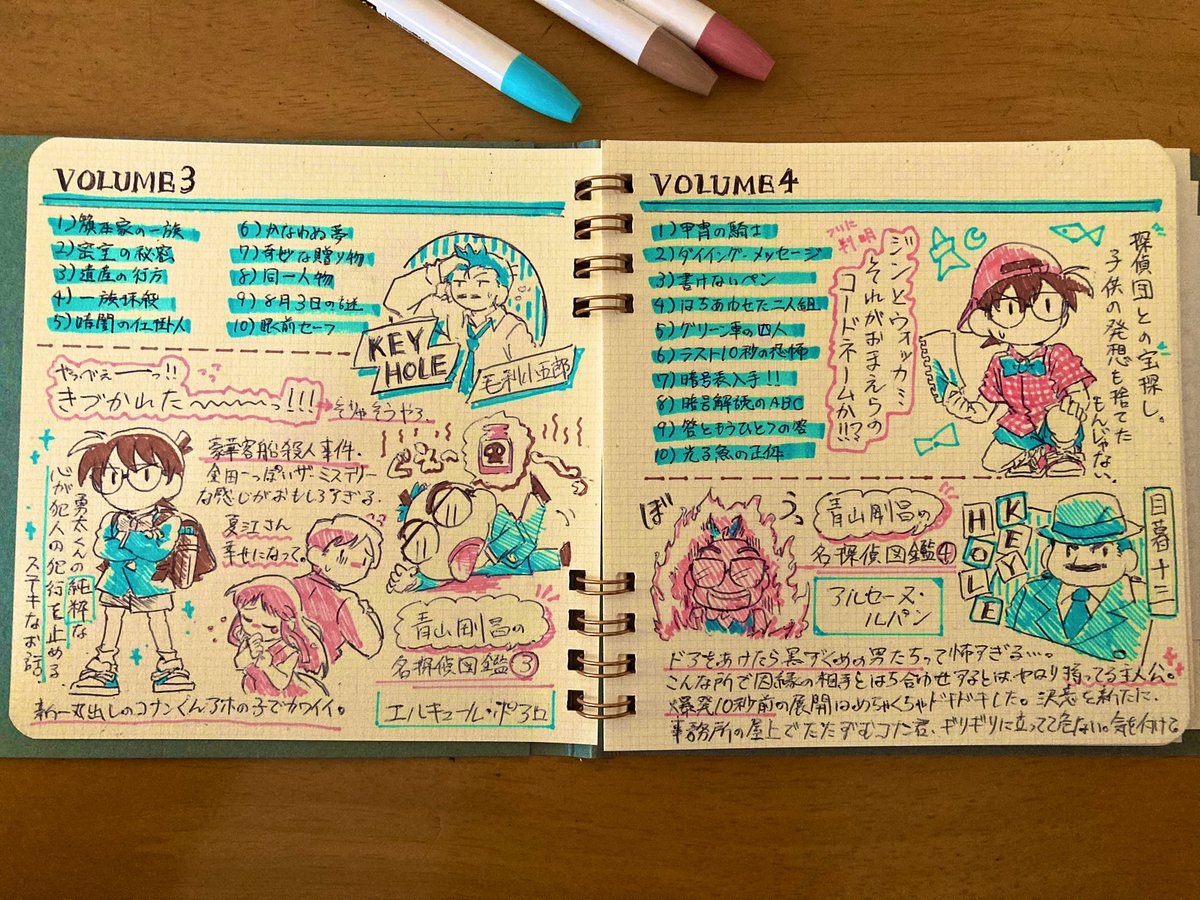 VOLUME3
1)旗本家の一族
2)密室の秘密
3)遺産の行方
4)一族抹殺
5)暗闇の仕掛人
6)かなわぬ夢
7)奇妙な贈り物
8)同一人物
9)8月3日の謎
10)眼前セーフ
KEY
HOLE
毛利小五郎
やっべぇーーっ!!
きづかれた〜〜〜っ!!!
そりゃそうやろ
豪華客船殺人事件。
金田一っぽいザ・ミステリー
な感じがおもしろすぎる。
夏江さん
幸せになって。
勇太くんの純粋な
心が犯人の犯行を止める
ステキなお話。
青山剛昌の
名探偵図鑑③
エルキュール・ポアロ
新一丸出しのコナンくんアホの子でカワイイ。
VOLUME4
1)甲冑の騎士
2)ダイイング・メッセージ
3)書けないペン
4)はちあわせた二人組
5)グリーン車の四人
6)ラスト10秒の恐怖
7)暗号表入手!!
8)暗号解読のABC
9)答ともうひとつの答
10)光る魚の正体
ついに
判明
ジンとウォッカ…
それがおまえらの
コードネームか!?
探偵団との宝探し。
子供の発想も捨てた
もんじゃない。
ぼ
うっ
青山剛昌の
名探偵図鑑④
アルセーヌ・
ルパン
KEY
HOLE
目暮十三
ドアをあけたら黒ずくめの男たちって怖すぎる…。
こんな所で因縁の相手とはち合わせするとはヤロリ持ってる主人公。
爆発10秒前の展開はめちゃくちゃドキドキした。決意を新たに、
事務所の屋上でたたずむコナン君、ギリギリに立ってて危ない。気を付けて